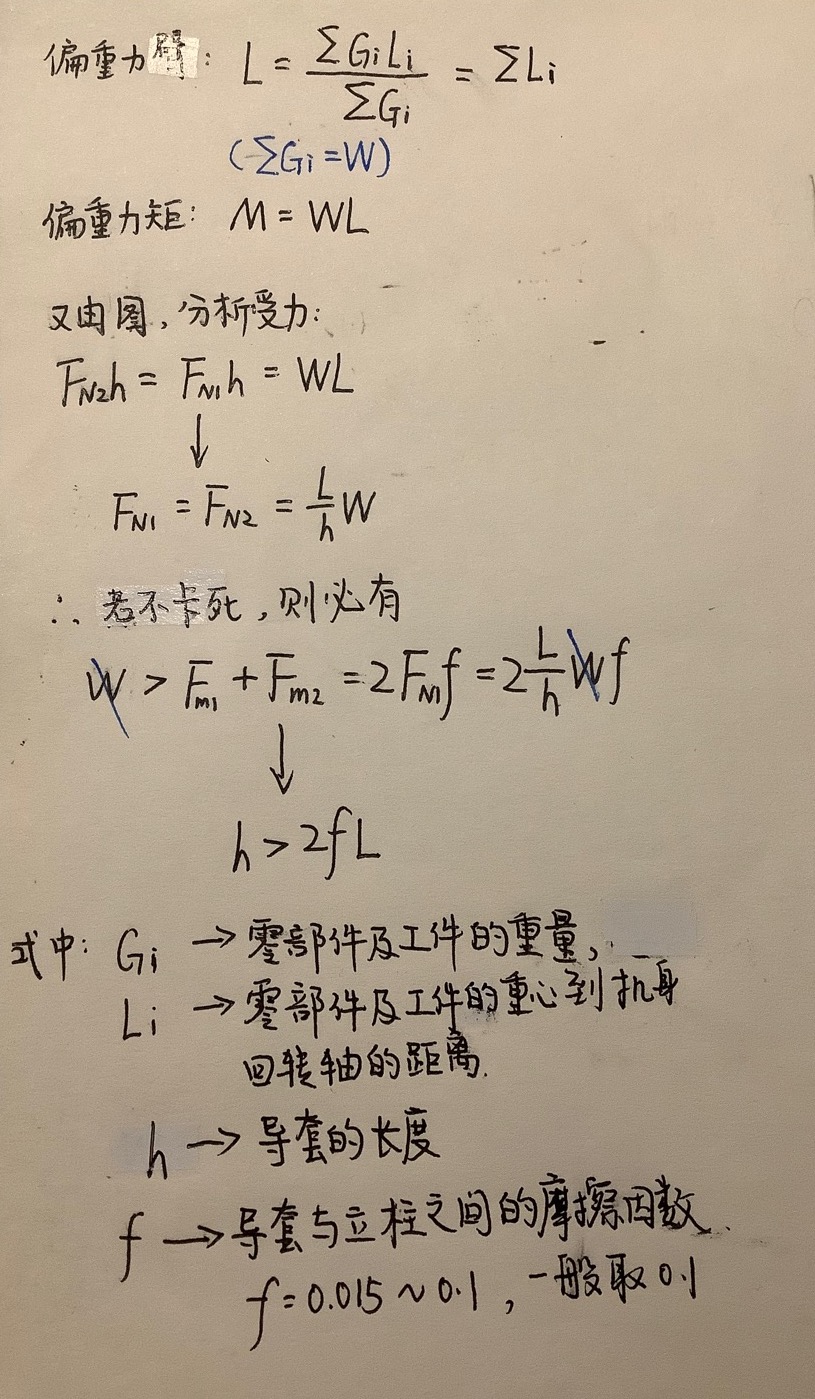 偏重力臂: L = ΣGiLi / ΣGi = ΣLi
(ΣGi = W)
偏重力矩: M = WL
又由图, 分析受力:
FN2h = FN1h = WL
↓
FN1 = FN2 = L/h W
∴ 若不卡死, 则必有
W > Fm1 + Fm2 = 2FN1f = 2 L/h Wf
↓
h > 2fL
式中: Gi → 零部件及工件的重量,
Li → 零部件及工件的重心到机身
回转轴的距离.
h → 导套的长度
f → 导套与立柱之间的摩擦因数.
f = 0.015 ~ 0.1, 一般取 0.1